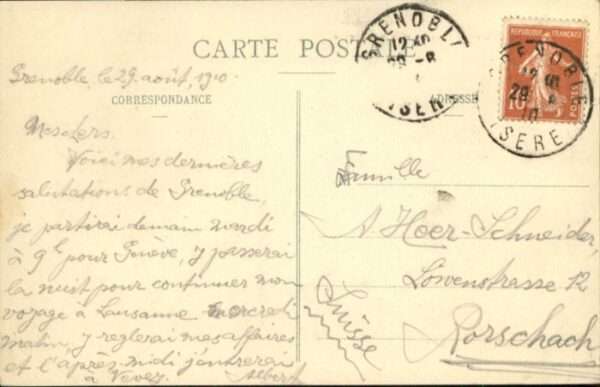 CARTE POSTALE
Grenoble, le 29 août, 1910.
CORRESPONDANCE
ADRESSE
GRENOBLE
12 45
29 -8
ISERE
REPUBLIQUE FRANÇAISE
10
POSTES
GRENOBLE
12 45
29 - 8
10
ISERE
Mes chers.
Voici mes dernières
salutations de Grenoble,
je partirai demain mardi
à 9h pour Genève, j'y passerai
la nuit pour continuer mon
voyage à Lausanne mercredi
matin, j'y reglerai mes affaires
et l'après-midi j'entrerai
à Vevey Albert
Famille
A. Heer-Schneider,
Löwenstrasse 12
Rorschach
Suisse